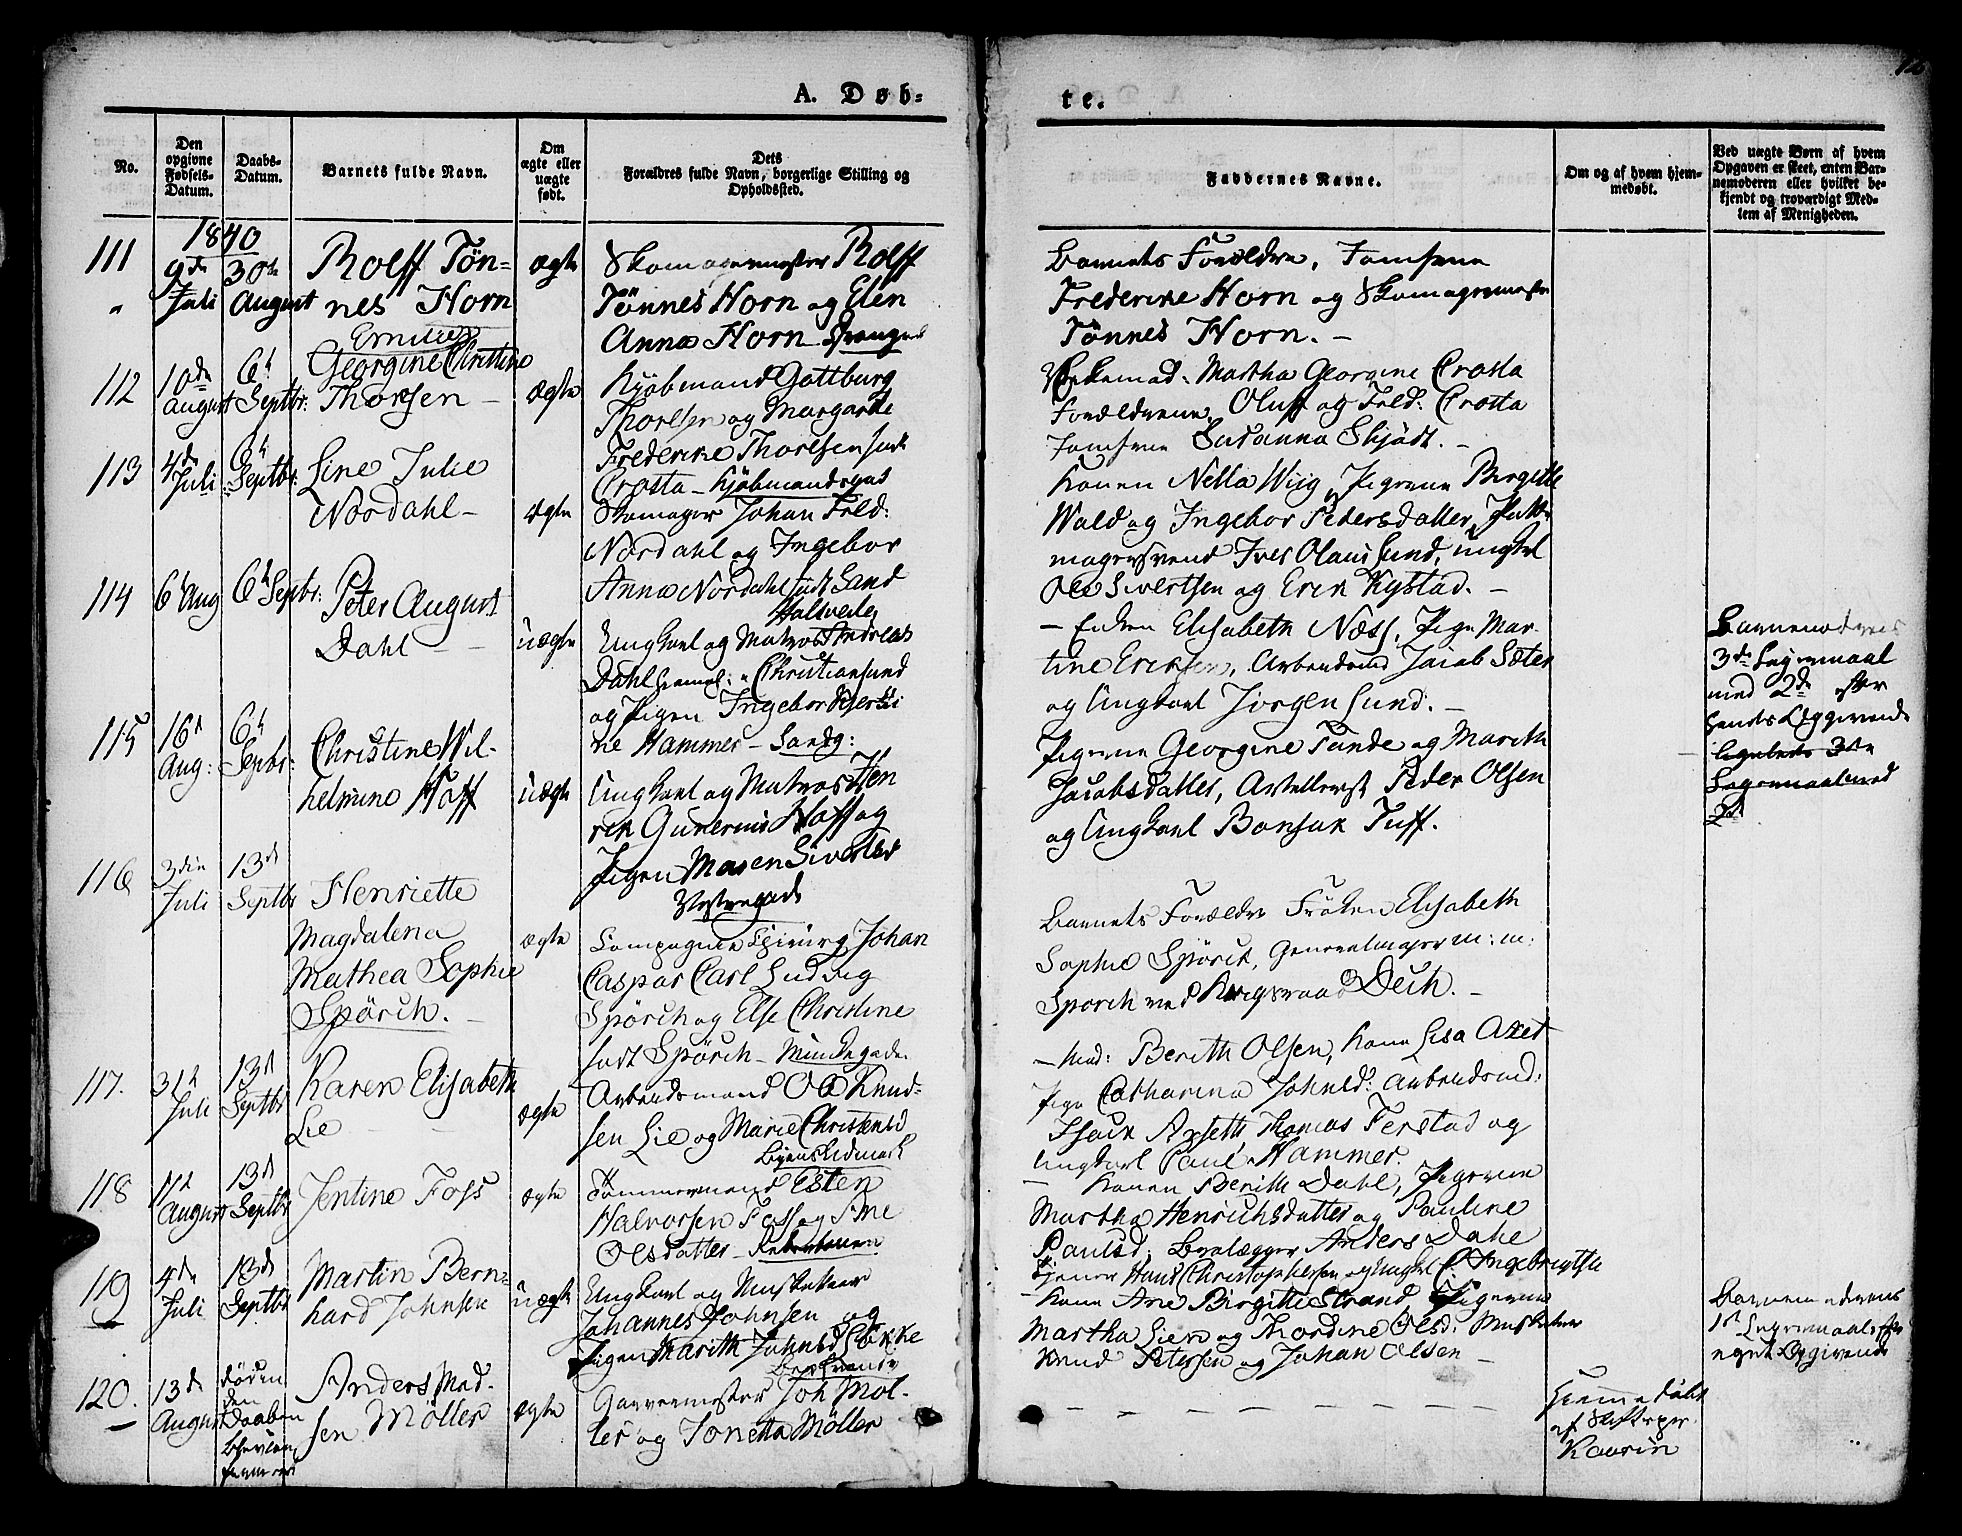 A. Døb=
te.
No.
Den opgivne Fødsels-Datum.
Daabs-Datum.
Barnets fulde Navn.
Om ægte eller uægte født.
Dets
Forældres fulde Navn, borgerlige Stilling og
Opholdssted.
Faddernes Navne.
Om og af hvem hjem-
medøbt.
Ved uægte Børn af hvem
Opgaven er skeet, enten Bar-
nemoderen eller hvilket be-
kjendt og troværdigt Med-
lem af Menigheden.
1840
111
9de Juli
30te August
Rolff Tön=
nes Horn
ægte
Skomagermester Rolff
Tönnes Horn og Elen
Anna Horn
Barnets Forældre, Jomfruen
Frederikke Horn og Skomagermester
Tönnes Horn. –
112
10de August
6t Septbr:
Emilie
Georgine Christine
Thorsen –
ægte
Kjöbmand Gottburg
Thorsen og Margarete
Frederike Thorsen födt
Crosta – Kjöbmandsgad
Martha Georgine Crosta
Forældrene, Oluff og Fred: Crosta
Jomfruen Susanna Skjödt. –
113
4de Juli
6t Septbr:
Line Julie
Nordahl –
ægte
Skomager Johan Fred:
Nordahl og Ingebor
Anna Nordahl födt Sand
Konen Nella Wiig, Pigerne Birgitte
Wald og Ingebor Pedersdatter,
magersvend Iver Olaus Lund, Ungkarl
Ole Sivertsen og Erik Kystad. –
114
6t Aug
6t Septbr:
Peter August
Dahl – –
uægte
Ungkarl og Matros Andreas
Dahl Christiansund
og Pigen Ingebor
ne Hammer – Sandg:
– Enken Elisabeth Næss, Pige Mar-
tine Eriksen, Arbeidsmd Jacob Sæter
og Ungkarl Jörgen Lund. –
Barnemoderens
3die Leiermaal
med 2de efter
hendes Opgivende
115
16d Aug:
6t Septbr:
Christine Wil-
helmine Hoff
uægte
Ungkarl og Matros Hen
rik Gunerius Hoff og
Pigen Maren Sivertsd
Pigerne Georgine Pande og Marith
Jacobsdatter, Peder Olsen
og Ungkarl Bonsak Tuff.
116
3die Juli
13de Septbr
Henriette
Magdalena
Mathea Sophie
Spörch. –
ægte
Compagnie Chirurg Johan
Caspar Carl Ludvig
Spörch og Else Christine
födt Spörch – Munkegade
Barnets Forældre Fröken Elisabeth
Sophie Spörck, Generalmajor m: m:
Spörch ved Krigsraad Dech. –
117.
31t Juli
13d Septbr
Karen Elisabeth
Lie – –
ægte
Arbeidsmand Ole Knud-
sen Lie og Marie Christensd
– Mad: Berith Olsen, Kone Lisa Axet
Pige Catharina Johnsd: Arbeidsmd:
Isack Axseth, Thomas Ferstad og
Ungkarl Paul Hammer.
118
11t August
13d Septbr
Jentine Foss
ægte
Tömmermand Esten
Halvorsen Foss og Ane
Olsdatter –
– Konen Berith Dahl, Pigerne
Martha Henrichsdatter og Pauline
Paulsd. Anders Dahl
Tjener Hans Christophersen og Ungkl E Ingebrigtsen
119
4de Juli
13de Septbr
Martin Bern=
hard Johnsen
uægte
Ungkarl og Musketeer
Johannes Johnsen og
Pigen Marith Johnsd Løkke
– Kone Ane Birgitte Strand Pigerne
Martha Lien og Thordine Olsd: Musketeer
Knud Petersen og Johan Olsen –
Barnemoderens
1ste Leiermaal efter
eget Opgivende
120.
13de August
döde inden Daaben
Anders Mad-
sen Möller
ægte
Garvermester Joh Möl-
ler og Jonetta Möller
– – – – – – – –
Hjemmedöbt
af
Kaurin